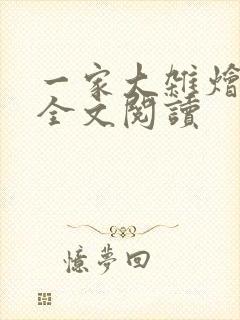 一家大雜燴
全文閱讀
憶夢回